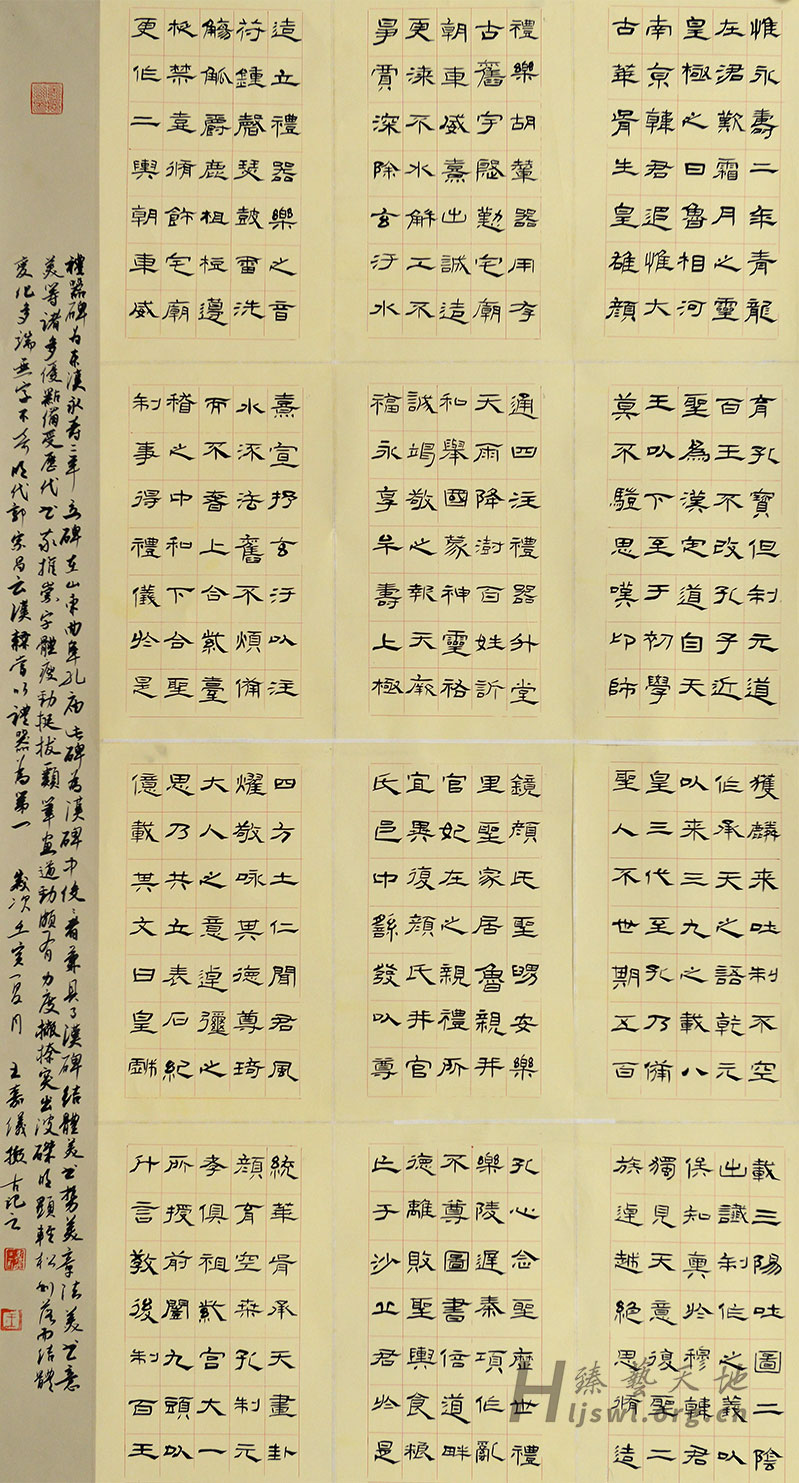 惟永壽二年青龍
在涒歎霜月之靈
皇極之日魯相河
南京韓君追惟大
古華胥生皇雄顏
育孔寶但制元道
百王不改孔子近
聖為漢定道自天
王以下至于初學
莫不驥思嘆卬師
獲麟來吐制不空
作承天之語乾元
以來三九之載八
皇三代至孔乃備
聖人不世期五百
載三陽吐圖二陰
出讖制作之義以
俟知奧於穆韓君
獨見天意復聖二
族逴越絕思脩造
禮樂胡輦器用存
古舊宇慇懃宅廟
朝車威熹出誠造
更漆不水解工不
爭賈深除玄汙水
通四注禮器升堂
天雨降澍百姓訢
和舉國蒙神靈祐
誠竭敬之報天厥
福永享牟壽上極
鏡顏氏聖舅安樂
里聖家居魯親幷
官妃在之親禮所
宜異復顏氏幷官
氏邑中繇發以尊
孔心念聖歷世禮
樂陵遲秦項作亂
不尊圖書倍道畔
德離敗聖輿食糧
亡于沙丘君於是
造立禮器樂之音
符鍾磬瑟鼓雷洗
觴觚爵鹿柤梪籩
柉禁壺脩飾宅廟
更作二輿朝車威
熹宣抒玄汙以注
水流法舊不煩備
而不奢上合紫臺
稽之中和下合聖
制事得禮儀於是
四方士仁聞君風
燿敬咏其德尊琦
大人之意逴彌之
思乃共立表石紀
億載其文曰皇戲
統華胥承天畫卦
顏育空桑孔制元
孝俱祖紫宮大一
所授前闓九頭以
什言教後制百王
禮器碑為東漢永壽二年立碑在山東曲阜孔廟此碑為漢碑中佼佼者兼具了漢碑結體美書勢美章法美書意
美等諸多優點備受歷代書家推崇字體瘦勁挺拔顯筆畫遒勁頗有力度撇捺突出波磔明顯輕松俐落而結體
變化多端無字不奇明代郭宗昌云漢隸當以禮器為第一 歲次壬寅夏月 王嘉儀擬古記之
臻藝天地
Hljswl.org.cn